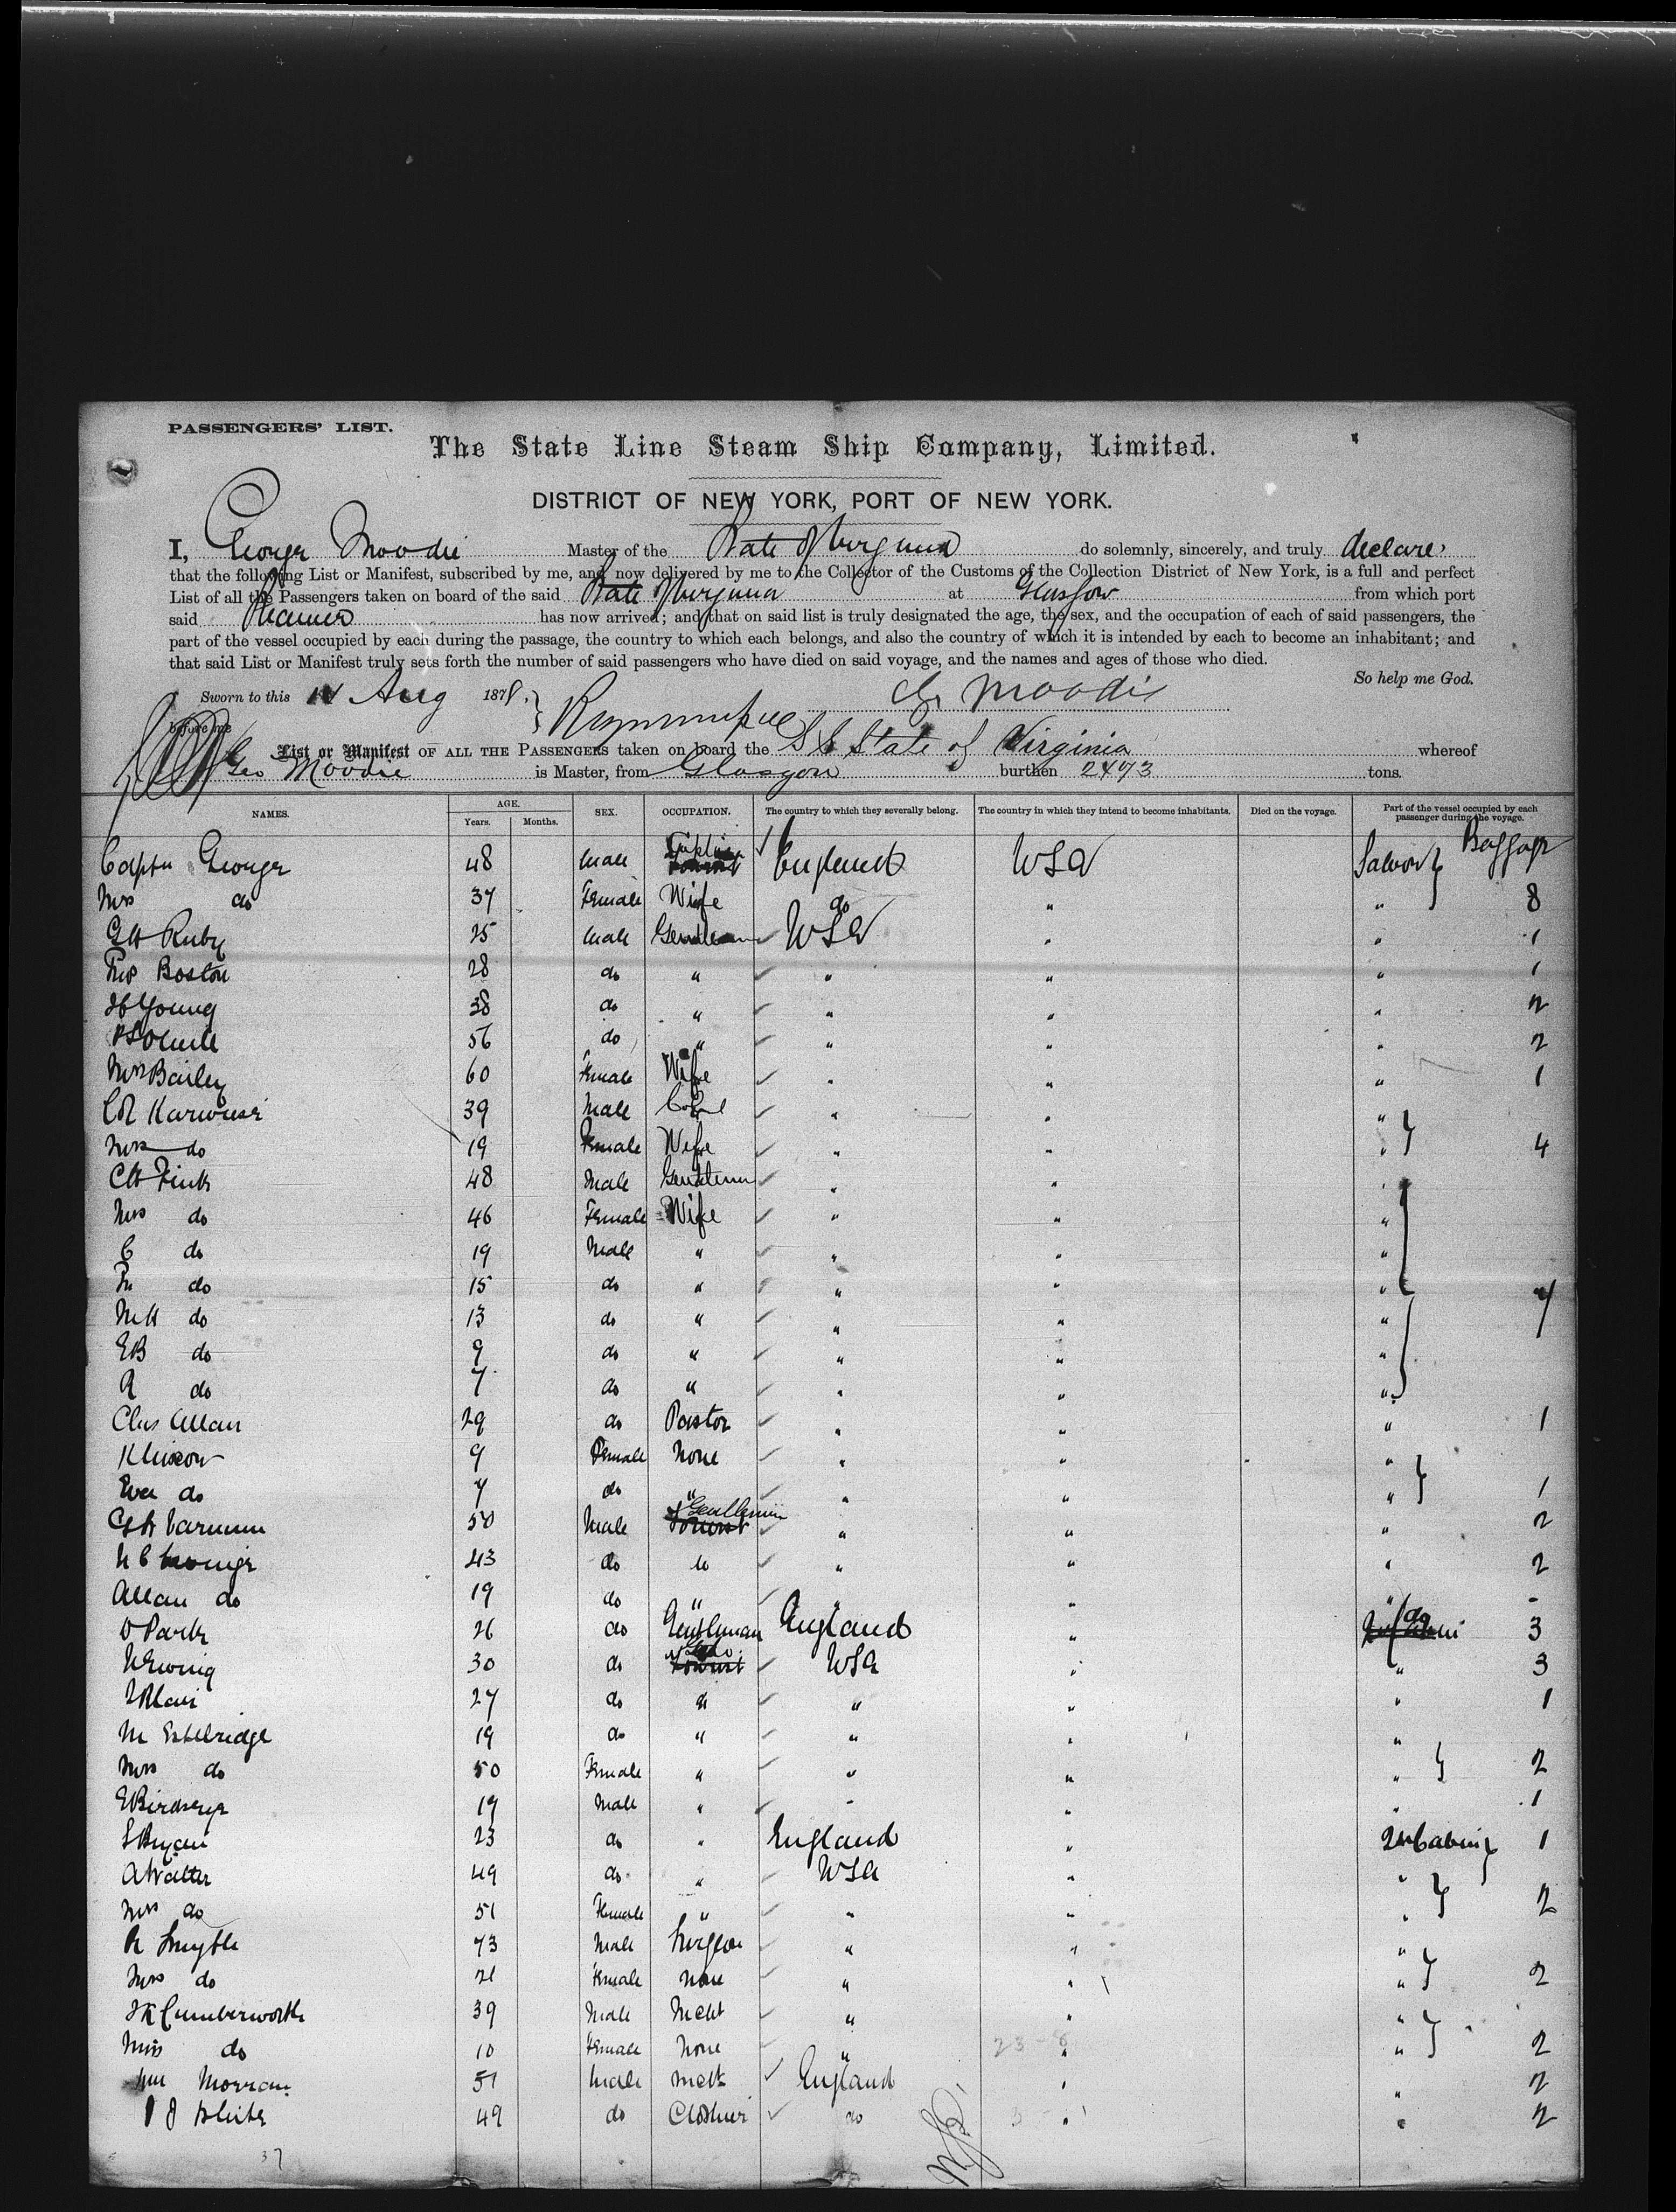 PASSENGERS' LIST.
The State Line Steam Ship Company, Limited.
DISTRICT OF NEW YORK, PORT OF NEW YORK.
I, George Moodie Master of the State of Virginia do solemnly, sincerely, and truly declare
that the following List or Manifest, subscribed by me, and now delivered by me to the Collector of the Customs of the Collection District of New York, is a full and perfect
List of all the Passengers taken on board of the said State of Virginia at Glasgow from which port
said Steamer has now arrived; and that on said list is truly designated the age, the sex, and the occupation of each of said passengers, the
part of the vessel occupied by each during the passage, the country to which each belongs, and also the country of which it is intended by each to become an inhabitant; and
that said List or Manifest truly sets forth the number of said passengers who have died on said voyage, and the names and ages of those who died.
So help me God.
Sworn to this 14 Aug 1878. G Moodie
before me
List or Manifest OF ALL THE PASSENGERS taken on board the SS State of Virginia whereof
Geo Moodie is Master, from Glasgow burthen 2473 tons.
NAMES. AGE. Years. Months. SEX. OCCUPATION. The country to which they severally belong. The country in which they intend to become inhabitants. Died on the voyage. Part of the vessel occupied by each passenger during the voyage.
Baggage
Captn George 48 Male England USA Saloon
Mrs do 37 Female Wife do " " 8
GH Ruby 25 Male Gentleman USA " " 1
Boston 28 do " " " " 1
Young 38 do " " " " 2
56 do " " " " 2
Mrs Bailey 60 Female Wife " " " 1
39 Male " " "
Mrs do 19 Female Wife " " " 4
CH Fink 48 Male Gentleman " " "
Mrs do 46 Female Wife " " "
C do 19 Male " " " "
M do 15 do " " " " 7
MH do 13 do " " " "
EB do 9 do " " " "
A do 7 do " " " "
Chas Allan 29 do Pastor " " " 1
9 Female None " " "
Eva do 7 do " " " " 1
GH Varnum 50 Male Gentleman " " " 2
43 do " " " 2
Allan do 19 do " " " " -
D Park 26 do Gentleman England " do 3
N Ewing 30 do do USA " " 3
Blair 27 do " " " " 1
M 19 do " " " "
Mrs do 50 Female " " " " 2
E Birdseye 19 Male " " " " 1
23 do " England " 2nd Cabin 1
A Walter 49 do " USA " "
Mrs do 51 Female " " " " 2
R Smythe 73 Male Surgeon " " "
Mrs do 21 Female None " " " 2
JK Cumberworth 39 Male Mcht " " "
Miss do 10 Female None " " " 2
Wm Morran 51 Male Mcht England " " 2
White 49 do Clothier do " " 2
37